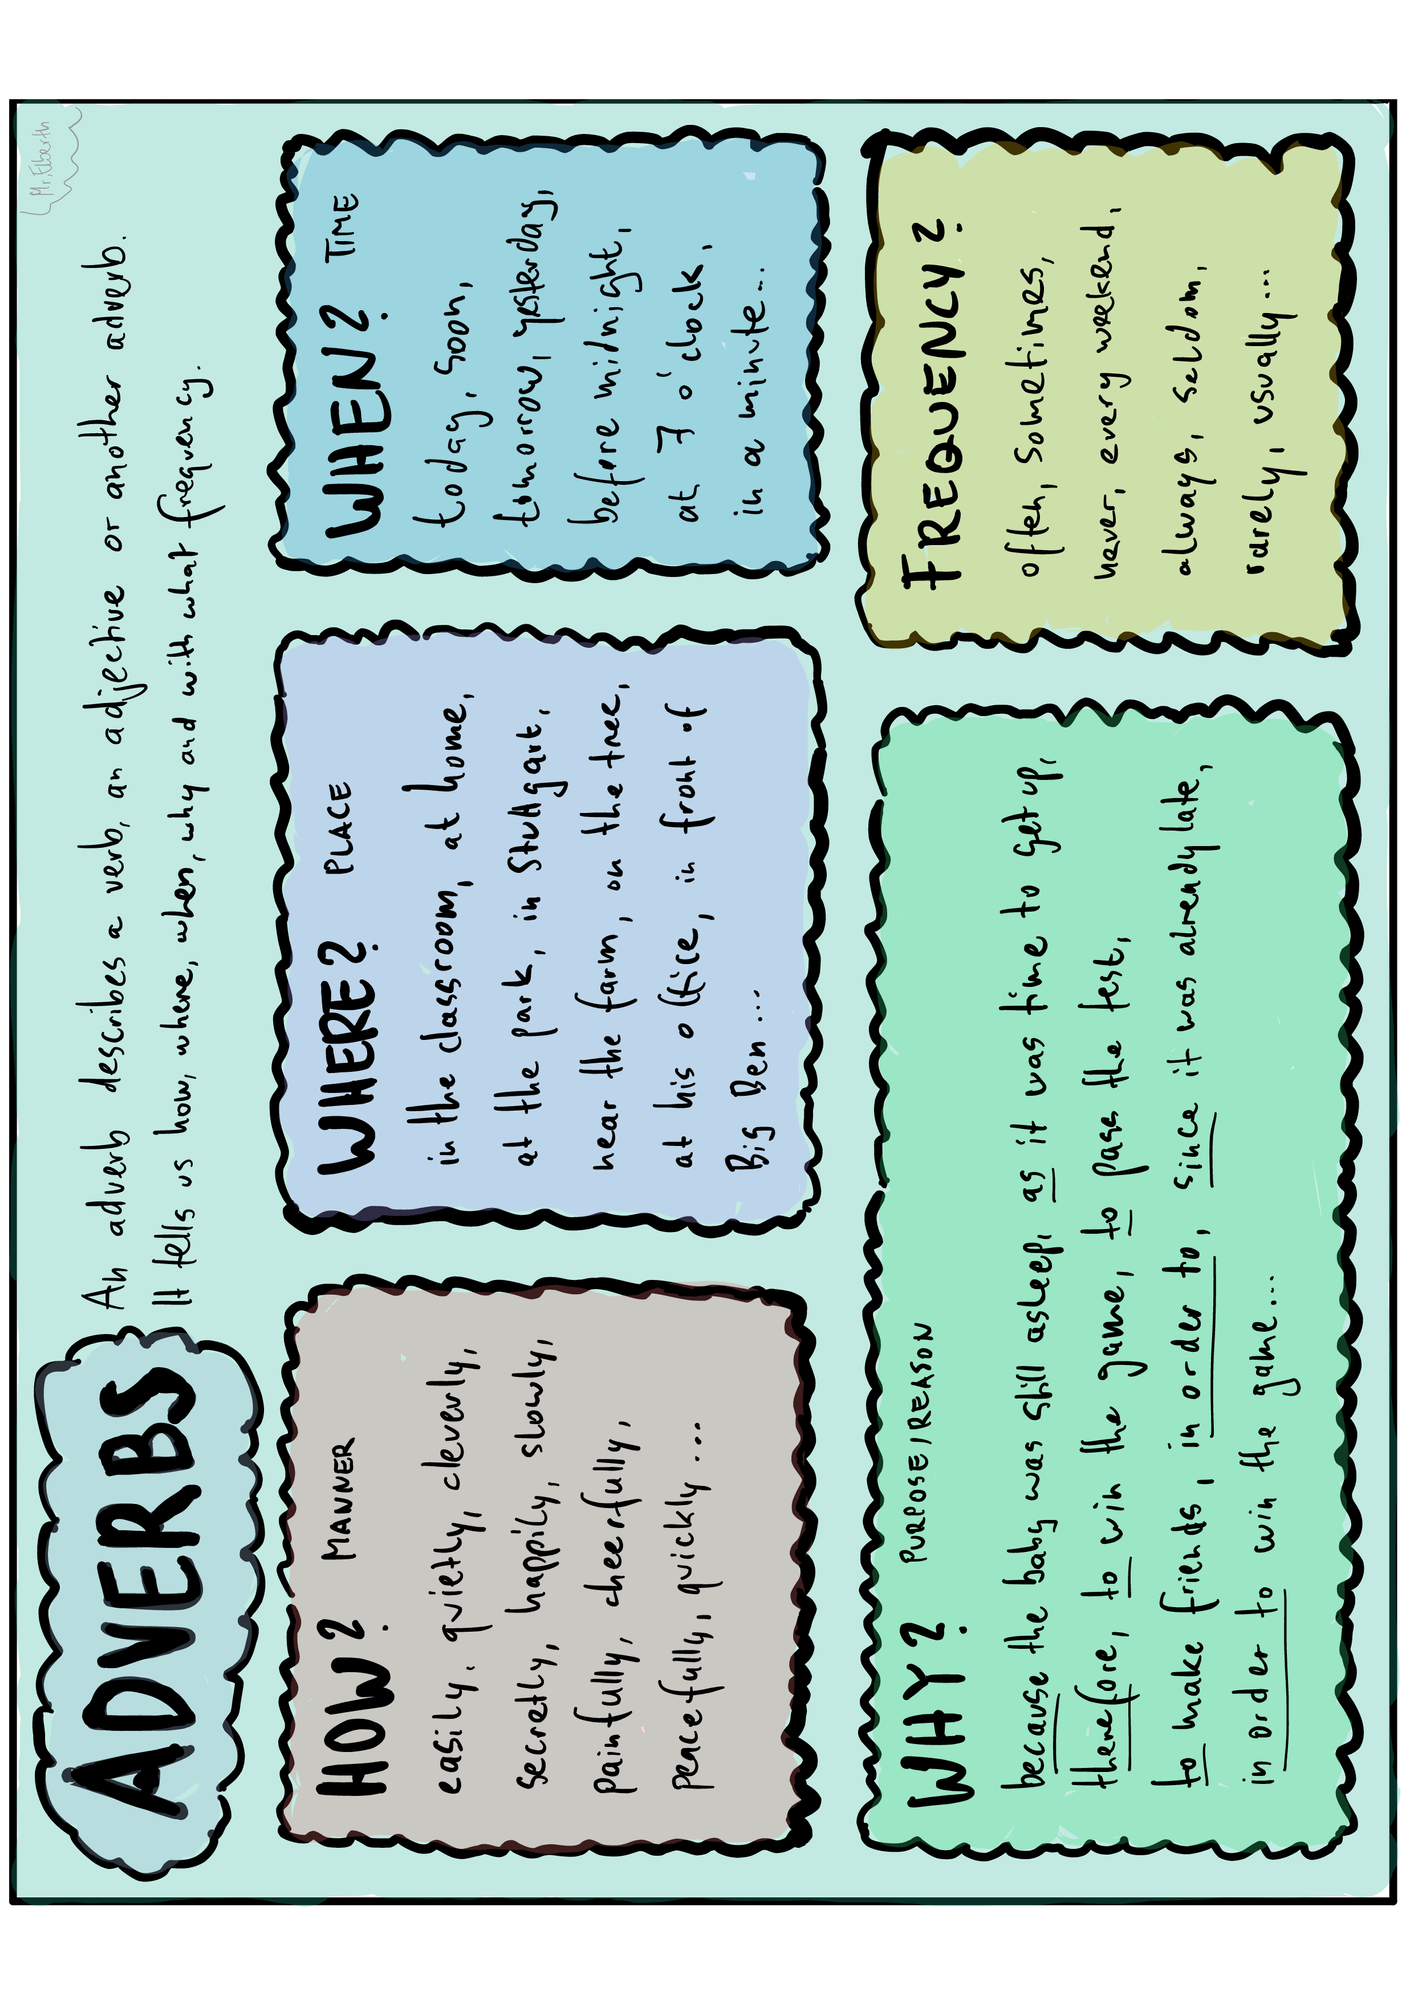 ADVERBS
An adverb describes a verb, an adjective or another adverb.
It tells us how, where, when, why and with what frequency.
Mr. Elberth
HOW? MANNER
easily, quietly, cleverly,
secretly, happily, slowly,
painfully, cheerfully,
peacefully, quickly...
WHERE? PLACE
in the classroom, at home,
at the park, in Stuttgart,
near the farm, on the tree,
at his office, in front of
Big Ben...
WHEN? TIME
today, soon,
tomorrow, yesterday,
before midnight,
at 7 o'clock,
in a minute...
WHY? PURPOSE/REASON
because the baby was still asleep, as it was time to get up,
therefore, to win the game, to pass the test,
to make friends, in order to, since it was already late,
in order to win the game...
FREQUENCY?
often, sometimes,
never, every weekend,
always, seldom,
rarely, usually...